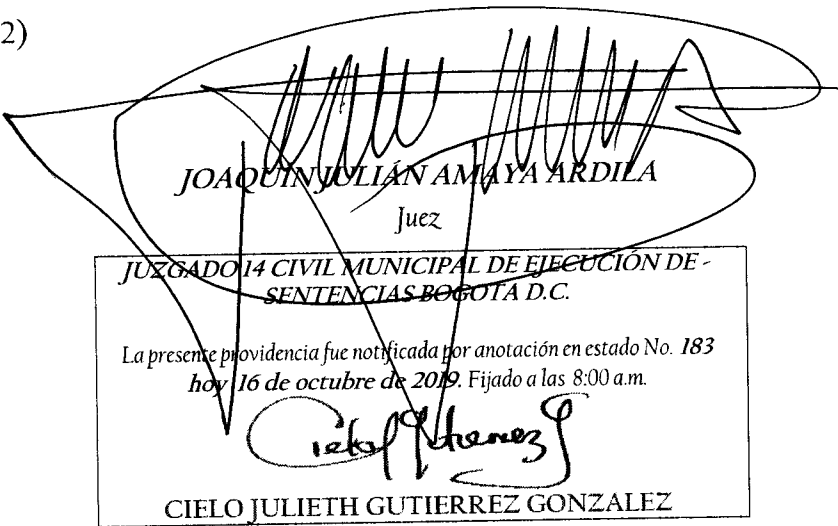 2)
JOAQUIN JULIÁN AMAYA ARDILA
Juez
JUZGADO 14 CIVIL MUNICIPAL DE EJECUCIÓN DE -
SENTENCIAS BOGOTA D.C.
La presente providencia fue notificada por anotación en estado No. 183
hoy 16 de octubre de 2019. Fijado a las 8:00 a.m.
Cielo J Gutierrez G
CIELO JULIETH GUTIERREZ GONZALEZ